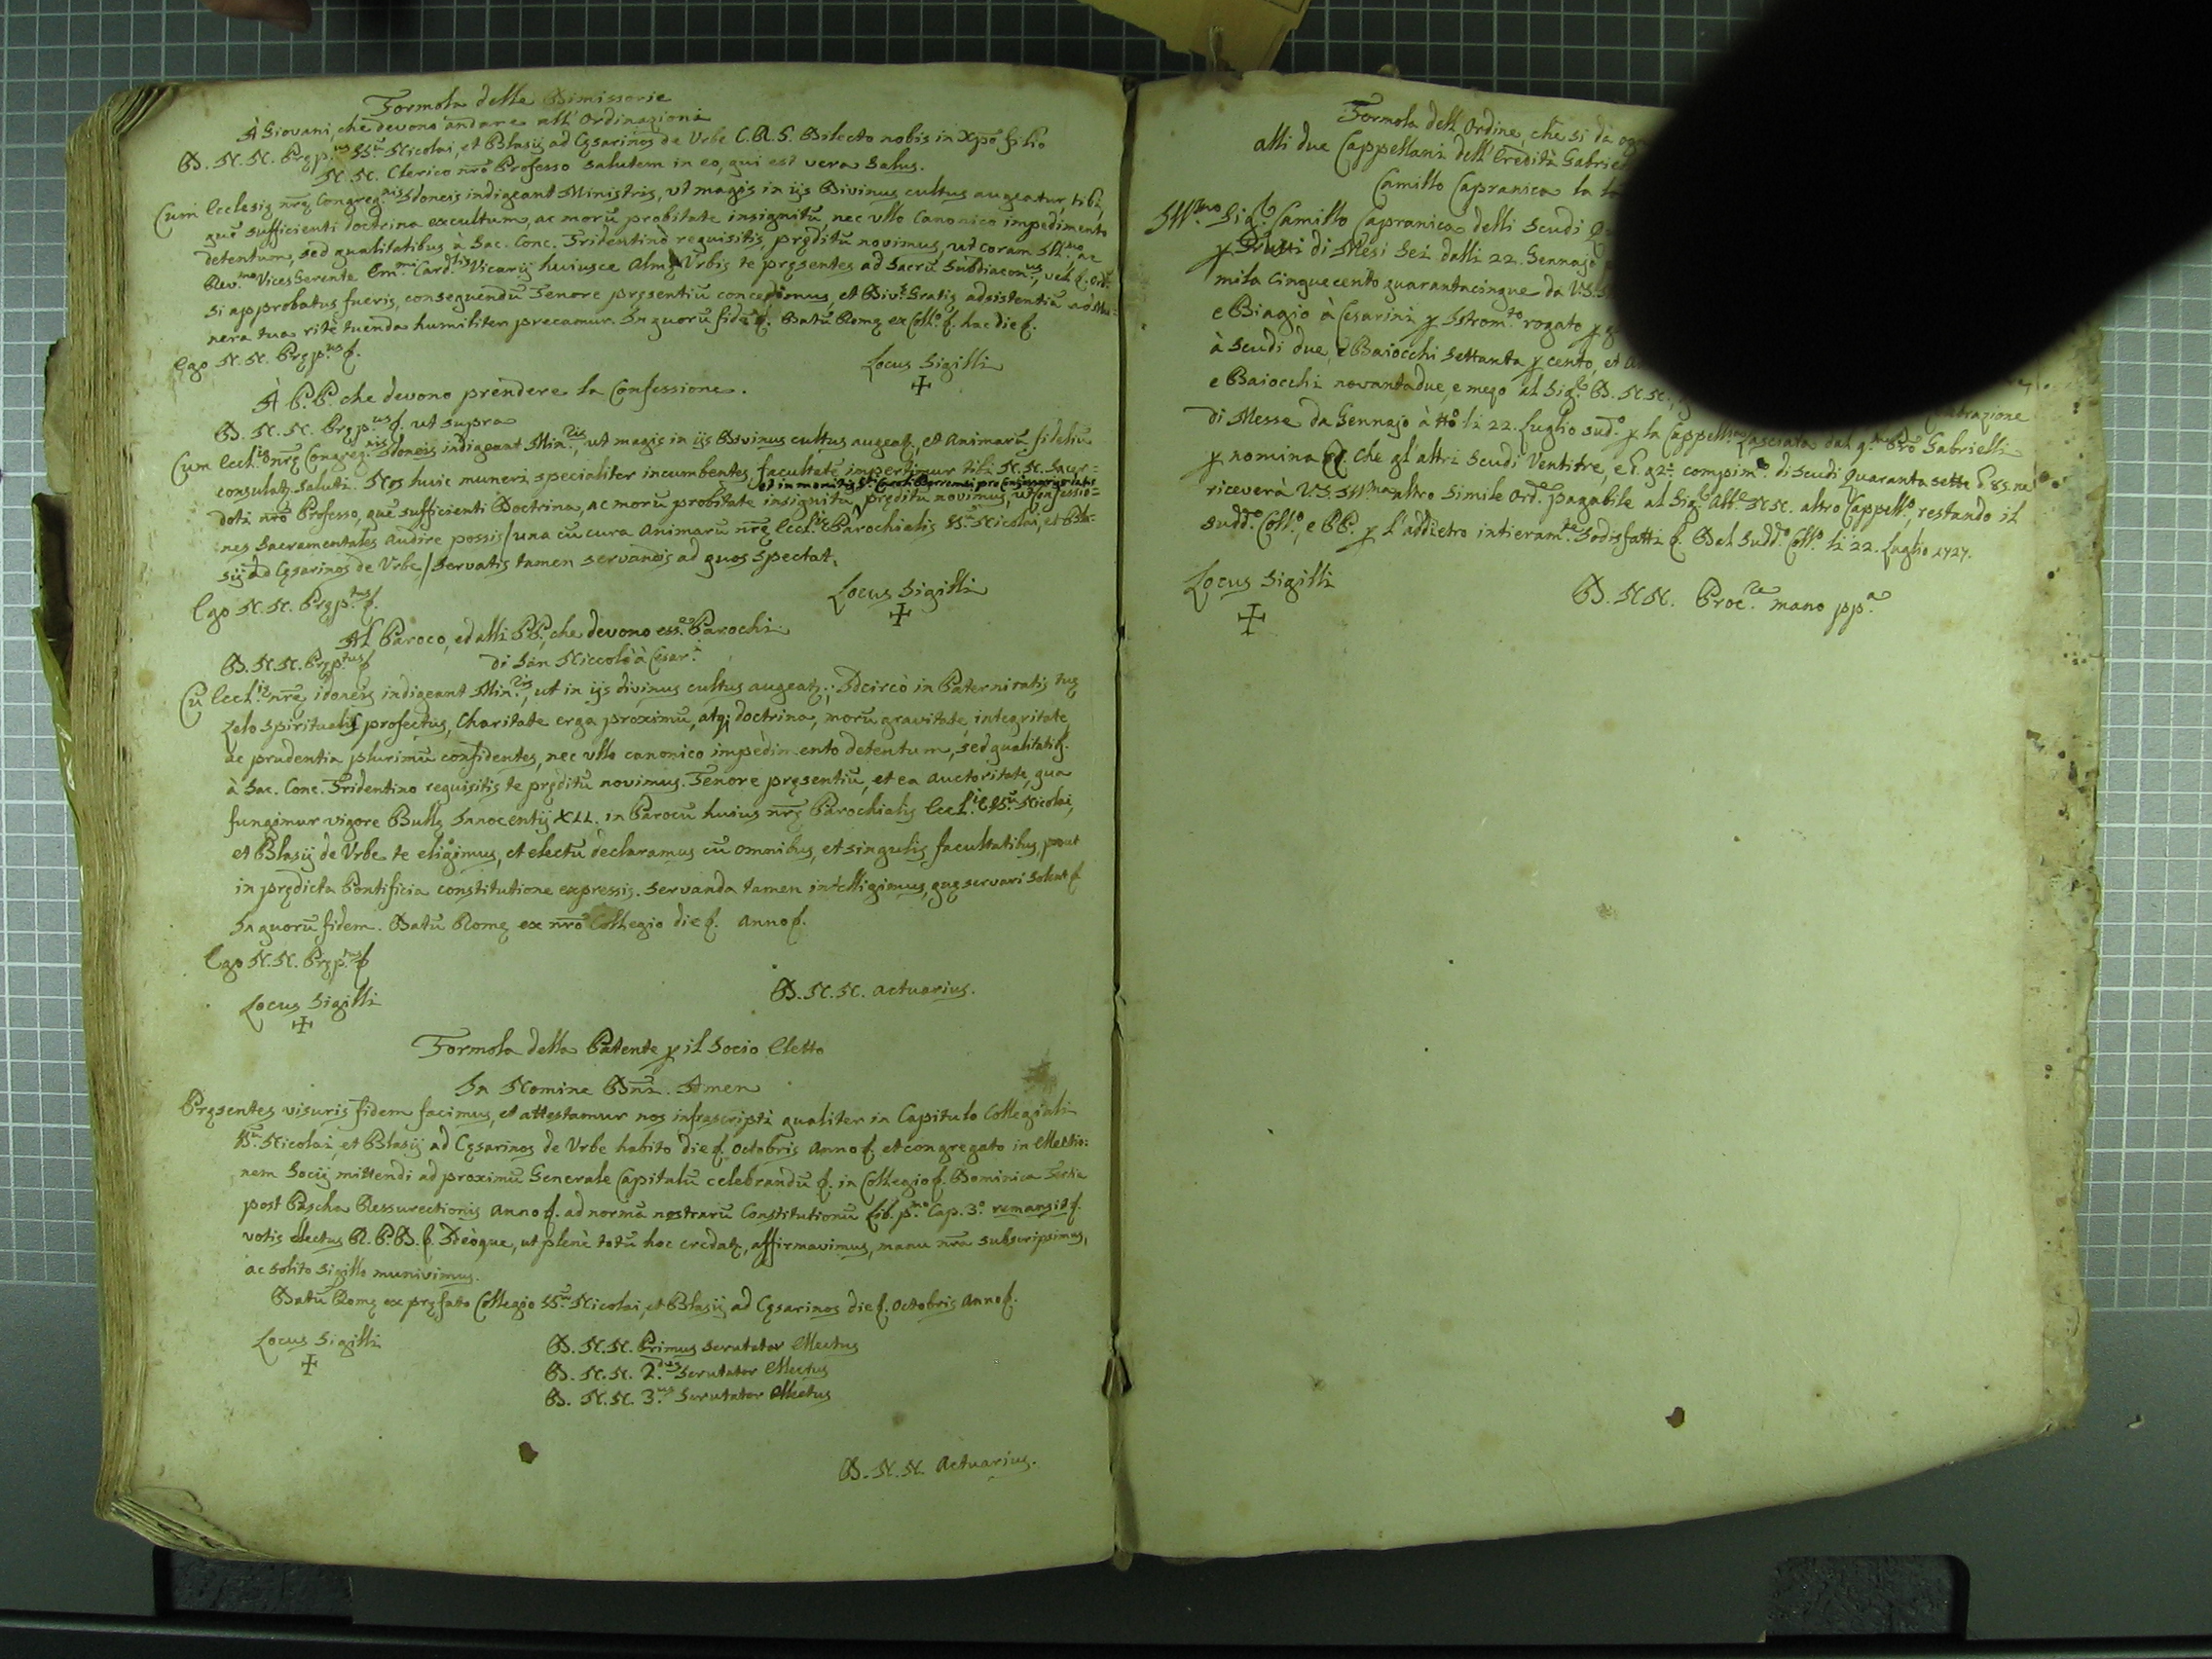 Formola delle Dimissorie
À Giovani, che devono andare all'Ordinazioni
D. N. N. Pręp.us SS.m Nicolai, et Blasij ad Cęsarinos de Urbe C.R.S. Dilecto nobis in Xpo filio
N. N. Clerico nr̄o Professo salutem in eo, qui est vera Salus.
Cum Ecclesię nr̄ę Congreg.nis Idoneis indigeant Ministris, ut magis in ijs Divinus cultus augeatur, tibi,
quē sufficienti doctrina excultum, ac morū probitate insignitū, nec ullo Canonico impedimento
detentum, sed qualitatibus à Sac. Conc. Tridentino requisitis, pręditū novimus, ut coram Ill.mo, ac
Rev.mo VicesGerente Em.mi Card.lis Vicarij huiusce Almę Urbis te pręsentes ad Sacrū Subdiacon.us, vel &. ord.
si approbatus fueris, consequendū Tenore pręsentiū concedimus, et Div.ę Gratię adsistentiā ad Mu=
nera tua ritè tuenda humiliter precamur. In quorū fidē &. Datū Romę ex Coll.o &. hac die &.
Ego N. N. Pręp.us &.
Locus Sigilli
✠
À P.P. che devono prendere la Confessione.
D. N. N. Pręp.us &. ut supra
Cum Eccl.ię nr̄ę Congreg.nis Idoneis indigeant Min.ris, ut magis in ijs Divinus cultus augeat., et Animarū fideliū
consulat. saluti. Nos huic muneri specialiter incumbentes facultatē impertimur tibi N. N. Sacer=
doti nr̄o Professo, quē sufficienti Doctrina, ac morū probitate insignitū pręditū novimus, ut Confessio=
nes Sacramentales audire possis / una cū cura Animarū nr̄ę Eccl.ię Parochialis SS.m Nicolai, et Bla=
sij ad Cęsarinos de Urbe / servatis tamen servandis ad quos spectat.
Ego N. N. Pręp.tus &.
Locus Sigilli
✠
Al Paroco, ed alli PP. che devono ess.re Parochi
D. N. N. Pręp.tus &
di San Niccolò à Cesar.i
Cū Eccl.ię nr̄ę idoneis indigeant Min.ris, ut in ijs divinus cultus augeat.; Idcircò in Paternitatis tuę
zelo spiritualis profectus, Charitate erga proximū, atq; doctrina, morū gravitate, integritate,
ac prudentia plurimū confidentes, nec ullo canonico impedimento detentum, sed qualitatib.
à Sac. Conc. Tridentino requisitis te pręditū novimus. Tenore pręsentiū, et ea auctoritate, qua
fungimur vigore Bullę Innocentij XII. in Parocū huius nr̄ę Parochialis Eccl.ię SS.m Nicolai,
et Blasij de Urbe te eligimus, et electū declaramus cū omnibus, et singulis facultatibus, prout
in prędicta Pontificia constitutione expressis. Servanda tamen intelligimus, quę servari solent &
In quorū fidem. Datū Romę ex nr̄o Collegio die &. Anno &.
Ego N. N. Pręp.tus &
Locus Sigilli
✠
D. N. N. Actuarius.
Formola della Patente p il Socio Eletto
In Nomine Dn̄i. Amen
Pręsentes visuris fidem facimus, et attestamur nos infrascripti qualiter in Capitulo Collegiali
SS.m Nicolai, et Blasij ad Cęsarinos de Urbe habito die &. Octobris Anno &. et congregato in Electio=
nem Socij mittendi ad proximū Generale Capitulū celebrandū &. in Collegio &. Dominica Tertia
post Pascha Ressurectionis Anno &. ad normā nostrarū Constitutionū Lib. p.mo Cap. 3.o remansit &.
votis electus R. P. D. &. Ideòque, ut plenè totū hoc credat., affirmavimus, manu nr̄a subscripsimus,
ac solito sigillo munivimus.
Datū Romę ex pręfato Collegio SS.m Nicolai, et Blasij ad Cęsarinos die &. Octobris Anno &.
Locus Sigilli
✠
D. N. N. Primus Scrutator Electus
D. N. N. 2.dus Scrutator Electus
D. N. N. 3.us Scrutator Electus
D. N. N. Actuarius.
Formola dell'Ordine, che si dà
alli due Cappellani dell'Eredità
Camillo Capranica la
Ill.mo Sig.r Camillo Capranica delli Scudi
p Frutti di Mesi Sei dalli 22. Gennajo
mila cinquecento quarantacinque da V.S.
e Biagio à Cesarini p Istrom.to rogato p
à Scudi due, e Baiocchi Settanta p cento, et
e Baiocchi novantadue, e mezo al Sig.r D. N. N.,
di Messe da Gennajo à tt.o li 22. Luglio sud.o p la Cappell.a Lasciata dal q.m Gabrielli
p nomina &. Che gl'altri Scudi Ventitre, e compim.o di Scudi Quaranta sette 85. ne
riceverà V.S. Ill.ma altro simile Ord.e pagabile al Sig.r Ab.e N.N. altro Cappell.o, restando il
Sudd.o Coll.o, e PP. p l'addietro intieram.te sodisfatti &. Dal Sudd.o Coll.o li 22. Luglio 1727.
Locus Sigilli
✠
D. N. N. Proc.re mano pp.a